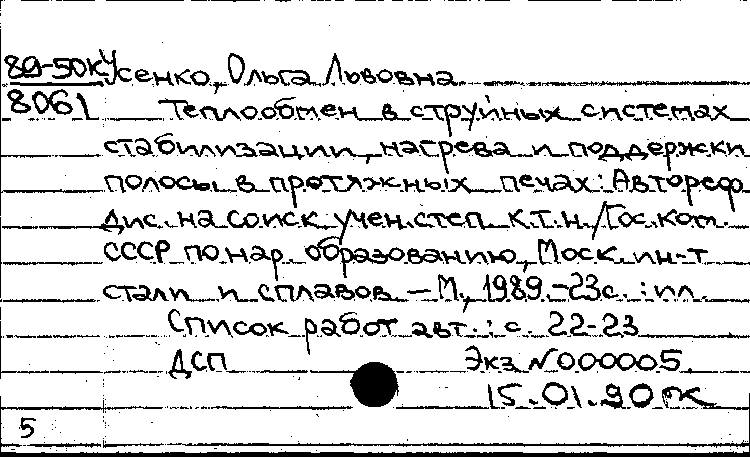 89-50к Усенко, Ольга Львовна
8061 Теплообмен в струйных системах
стабилизации, нагрева и поддержки
полосы в протяжных печах: Автореф
дис. на соиск учен. степ к.т.н. /Гос. ком.
СССР по нар. образованию, Моск. ин-т
стали и сплавов – М., 1989.-23с. : ил.
Список работ авт. : с. 22-23
ДСП Экз N000005.
15.01.90
5